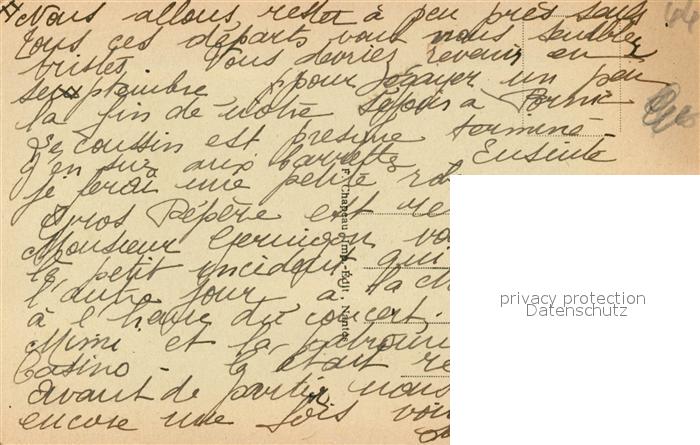 Nous allons rester à peu près seuls
tous ces départs vont nous sembler
tristes. Vous devriez revenir en
septembre pour égayer un peu
la fin de notre séjour à Pornic
Le coussin est presque terminé
j'en suis aux barrettes. Ensuite
je ferai une petite
Gros Pépère est
Monsieur
le petit incident qui
l'autre jour à la
à l'heure du concert.
Mimi et la
Casino - était
avant de partir nous
encore une fois
F. Chapeau Imp.-Édit., Nantes
privacy protection
Datenschutz